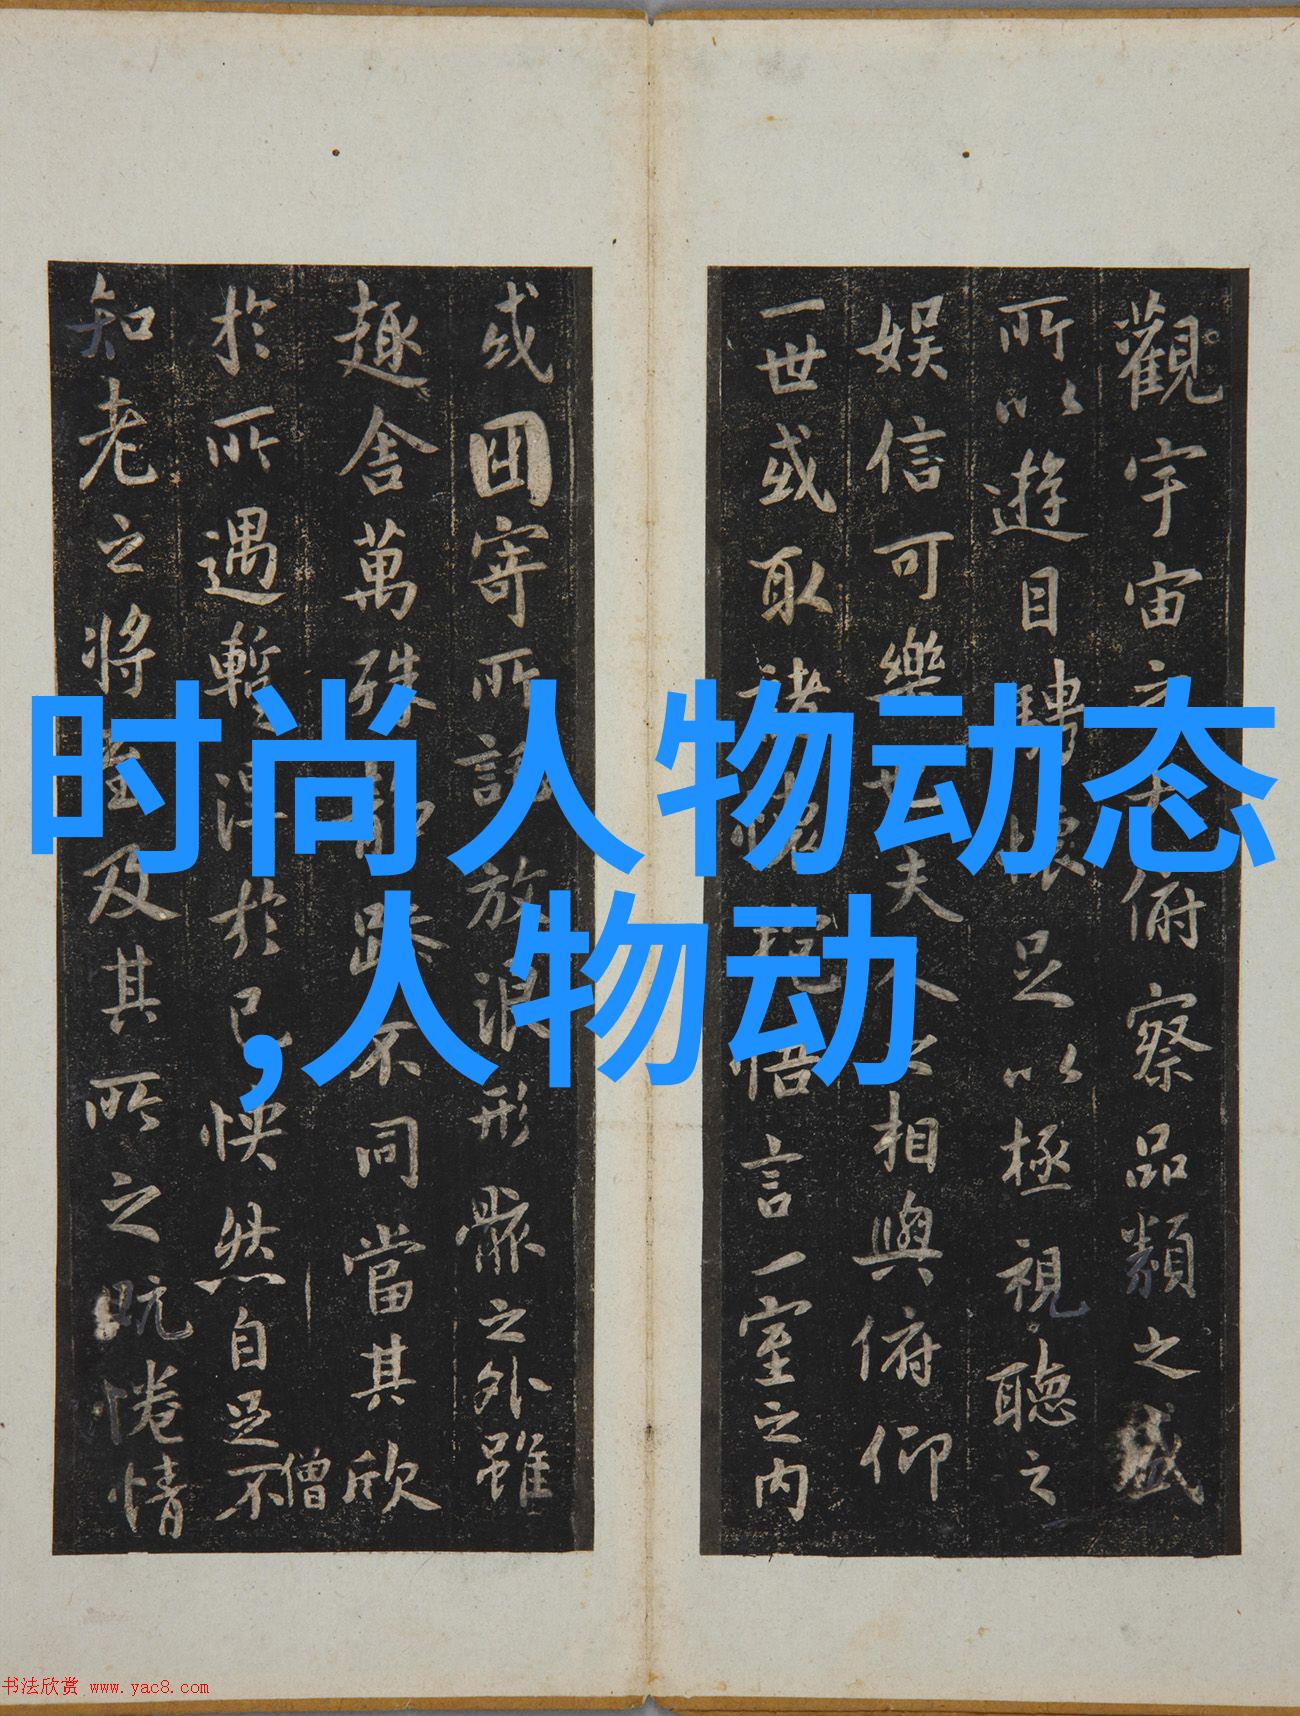 觀宇宙之大俯察品類之盛
所以遊目騁懷足以極視聽之
娛信可樂也夫人之相與俯仰
一世或取諸懷抱悟言一室之內
或因寄所託放浪形骸之外雖
趣舍萬殊靜躁不同當其欣
僧
於所遇暫得於己怏然自足不
知老之將至及其所之既惓情
时尚人物动态
,人物动
书法欣赏 www.yac8.com